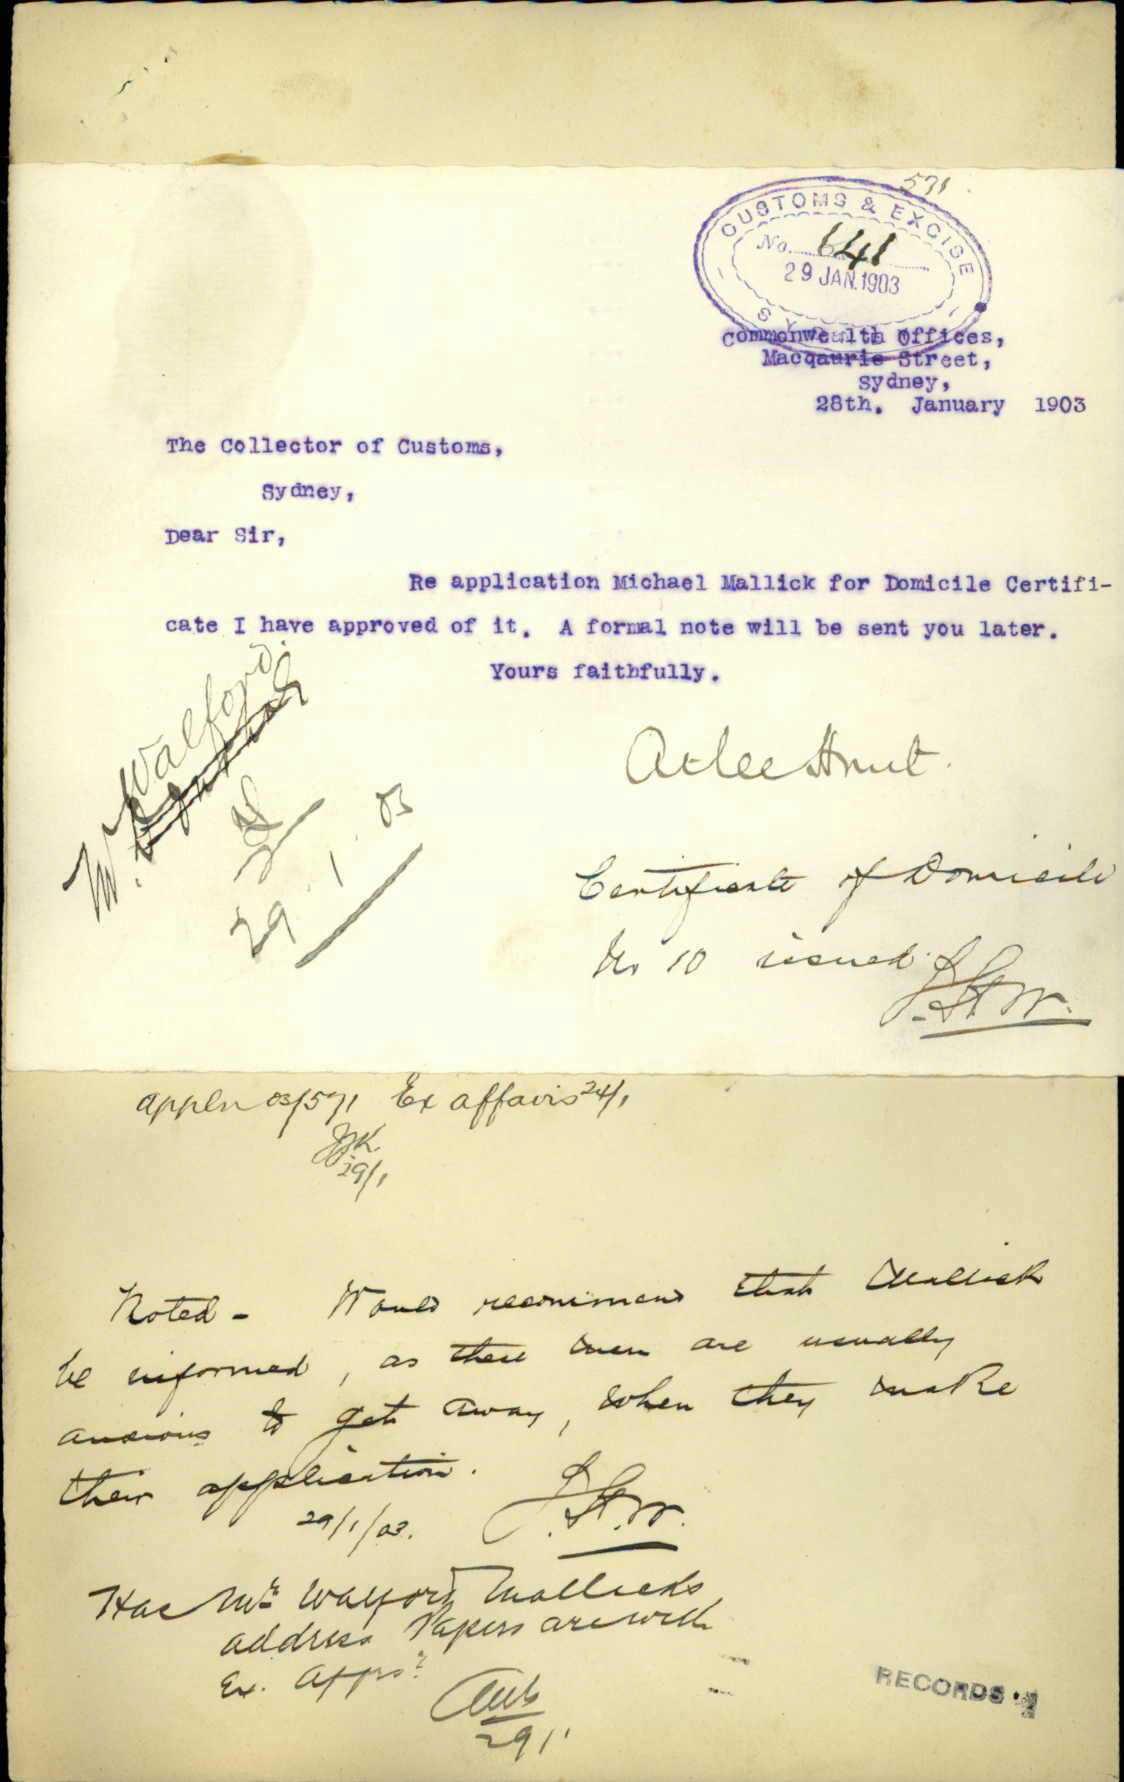 571
CUSTOMS & EXCISE
No. 641
29 JAN. 1903
SYDNEY
Commonwealth Offices,
Macqaurie Street,
Sydney,
28th. January 1903
The Collector of Customs,
Sydney,
Dear Sir,
Re application Michael Mallick for Domicile Certifi-
cate I have approved of it. A formal note will be sent you later.
Yours faithfully.
Atlee Hunt
Mr. Walford
29.1.03
Certificate of Domicile
No 10 issued
J.H.W.
appln 03/571 Ex affairs 24/1
29/1
Noted - Would recommend that Mallick
be informed, as these men are usually
anxious to get away, when they make
their application.
29/1/03. J.H.W.
Has Mr Walford Mallicks
address Papers are with
Ex. Affrs?
29/1
RECORDS